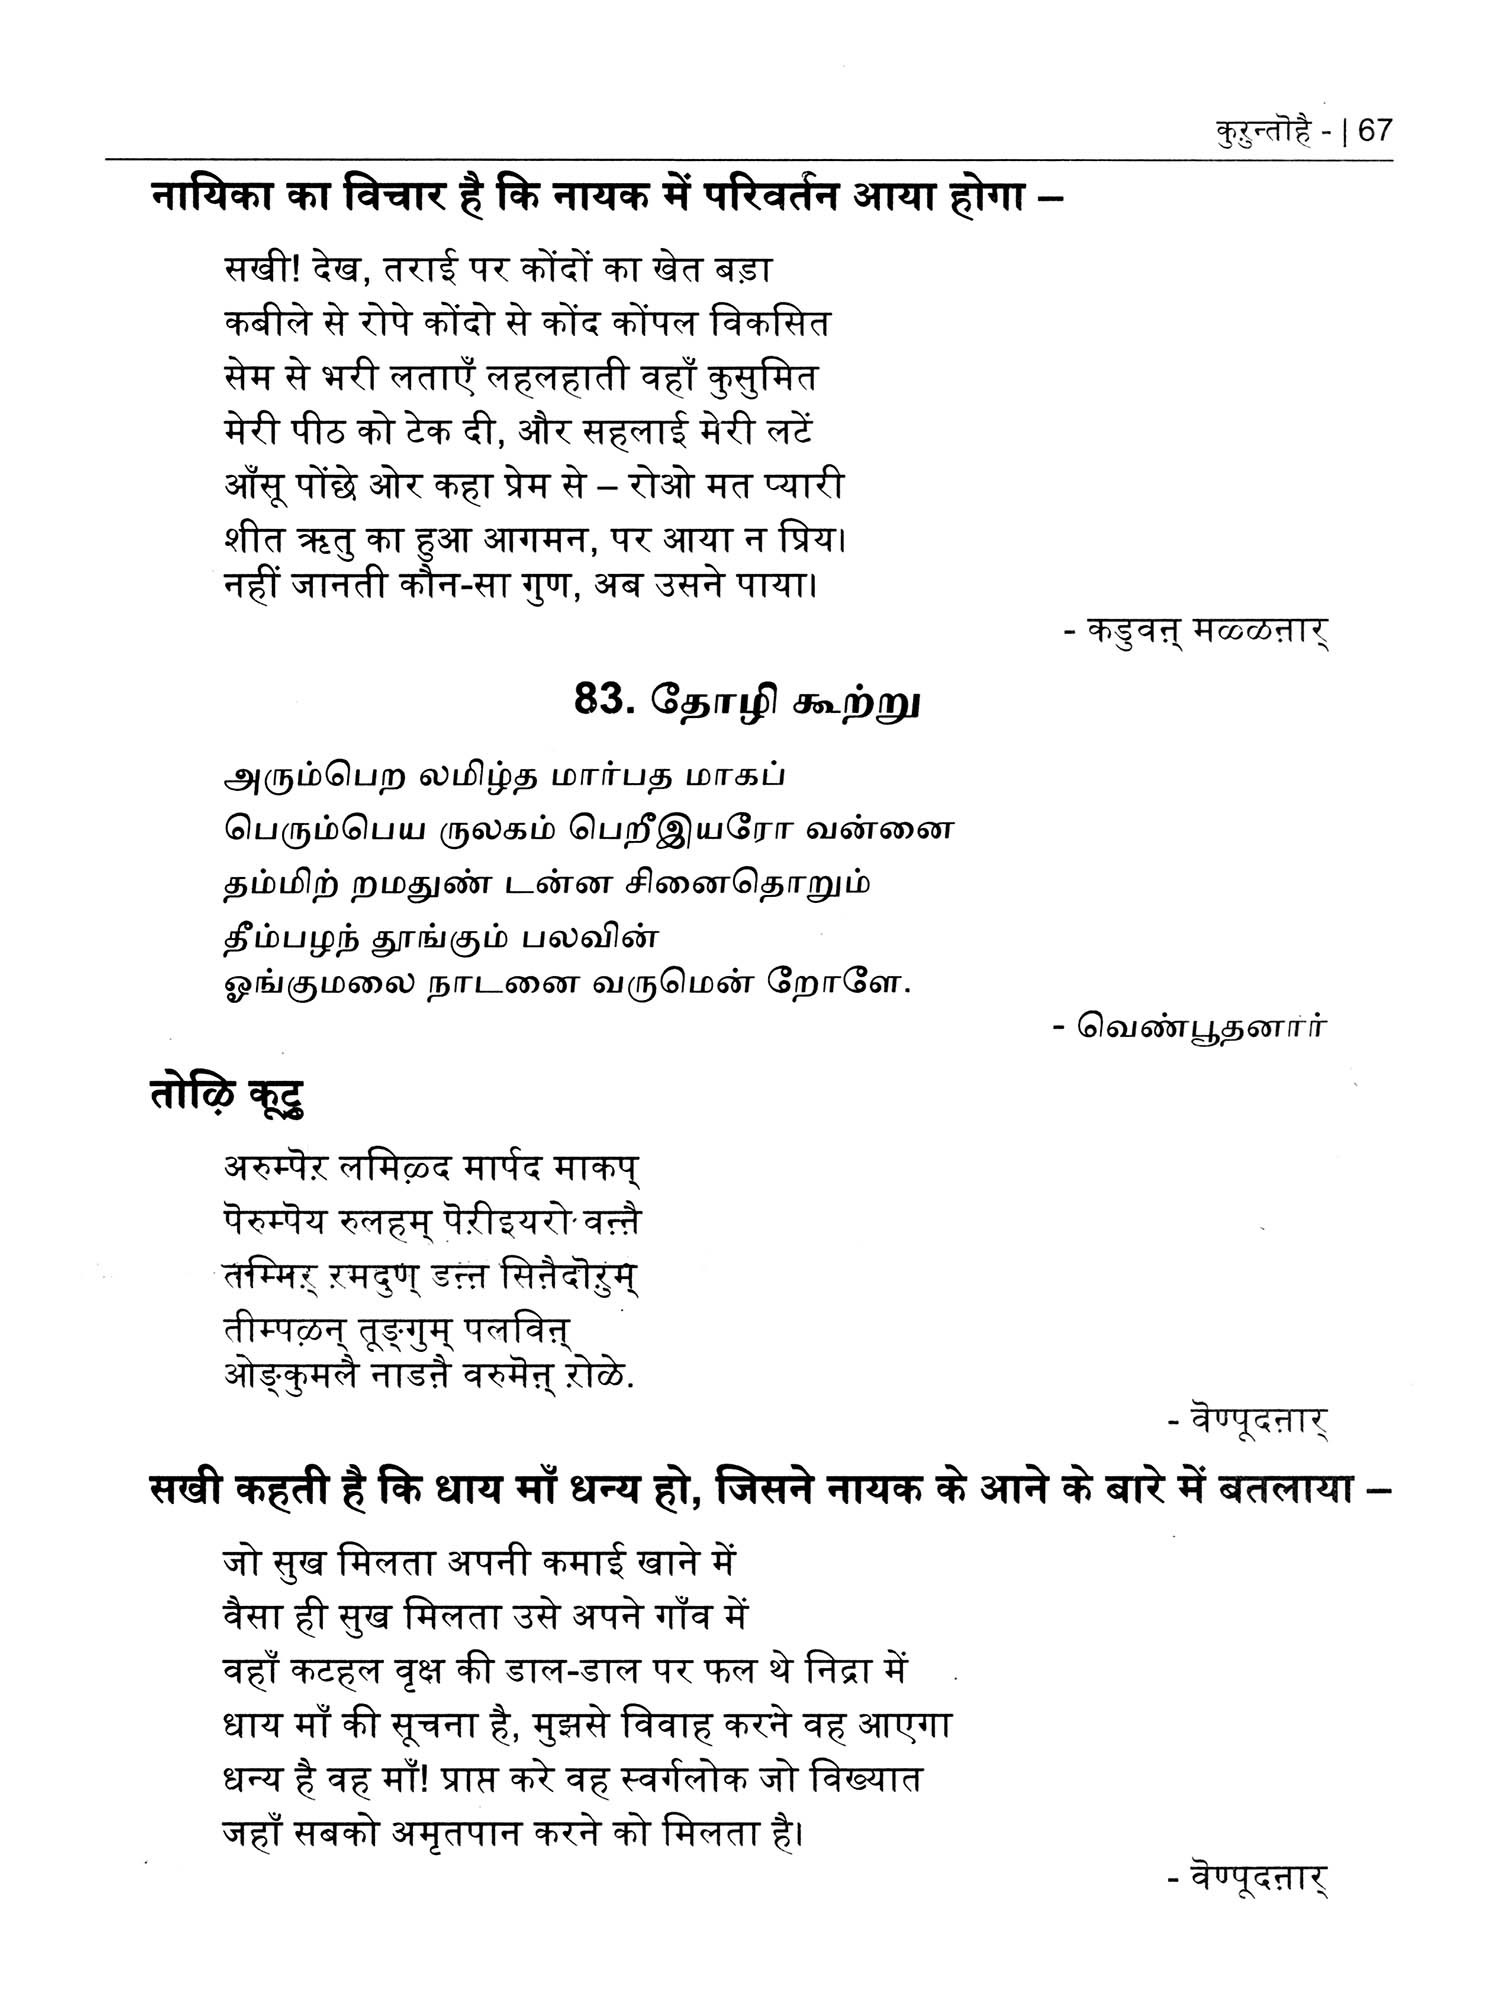 कुऱुन्तॊहै - | 67
नायिका का विचार है कि नायक में परिवर्तन आया होगा –
सखी! देख, तराई पर कोंदों का खेत बड़ा
कबीले से रोपे कोंदो से कोंद कोंपल विकसित
सेम से भरी लताएँ लहलहाती वहाँ कुसुमित
मेरी पीठ को टेक दी, और सहलाई मेरी लटें
आँसू पोंछे ओर कहा प्रेम से – रोओ मत प्यारी
शीत ऋतु का हुआ आगमन, पर आया न प्रिय।
नहीं जानती कौन-सा गुण, अब उसने पाया।
- कडुवऩ् मळ्ळऩार्
83. தோழி கூற்று
அரும்பெற லமிழ்த மார்பத மாகப்
பெரும்பெய ருலகம் பெறீஇயரோ வன்னை
தம்மிற் றமதுண் டன்ன சினைதொறும்
தீம்பழந் தூங்கும் பலவின்
ஓங்குமலை நாடனை வருமென் றோளே.
- வெண்பூதனார்
तोऴि कूट्रु
अरुम्पॆऱ लमिऴ्द मार्पद माकप्
पॆरुम्पॆय रुलहम् पॆऱीइयरो वऩ्ऩै
तम्मिऱ् ऱमदुण् डऩ्ऩ सिऩैदॊऱुम्
तीम्पऴन् तूङ्गुम् पलविऩ्
ओङ्कुमलै नाडऩै वरुमॆऩ् ऱोळे.
- वॆण्पूदऩार्
सखी कहती है कि धाय माँ धन्य हो, जिसने नायक के आने के बारे में बतलाया –
जो सुख मिलता अपनी कमाई खाने में
वैसा ही सुख मिलता उसे अपने गाँव में
वहाँ कटहल वृक्ष की डाल-डाल पर फल थे निद्रा में
धाय माँ की सूचना है, मुझसे विवाह करने वह आएगा
धन्य है वह माँ! प्राप्त करे वह स्वर्गलोक जो विख्यात
जहाँ सबको अमृतपान करने को मिलता है।
- वॆण्पूदऩार्